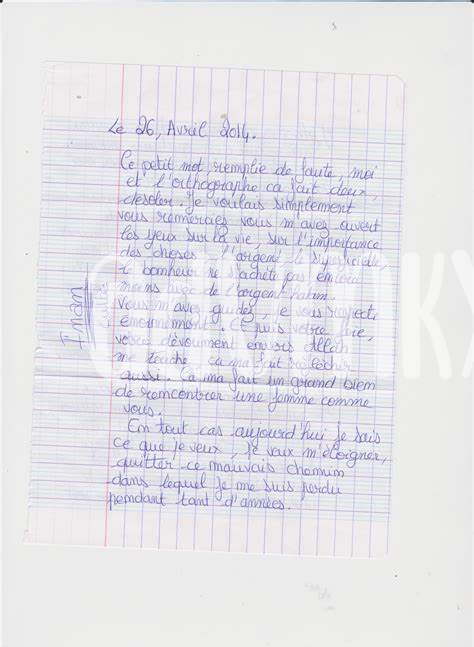 Le 26, Avril 2014.
Ce petit mot, remplie de faute, moi
et l'orthographe ca fait deux,
desoler. Je voulais simplement
vous remercies vous m'avez ouvert
les yeux sur la vie, sur l'importance
des choses, l'argent le superficielle,
le bonheur ne s'achète pas encore
moins avec de l'argent haram.
Vous m'avez guides, je vous respecte
énormément. Et puis votre foie,
votre dévoument envers Allah
me touche, ca ma fait réflechir
aussi. Ca ma fait un grand bien
de rencontrer une femme comme
vous.
En tout cas aujourd'hui je sais
ce que je veux, je veux m'éloigner,
quitter ce mauvais chemin
dans lequel je me suis perdu
pendant tant d'années.
Imam